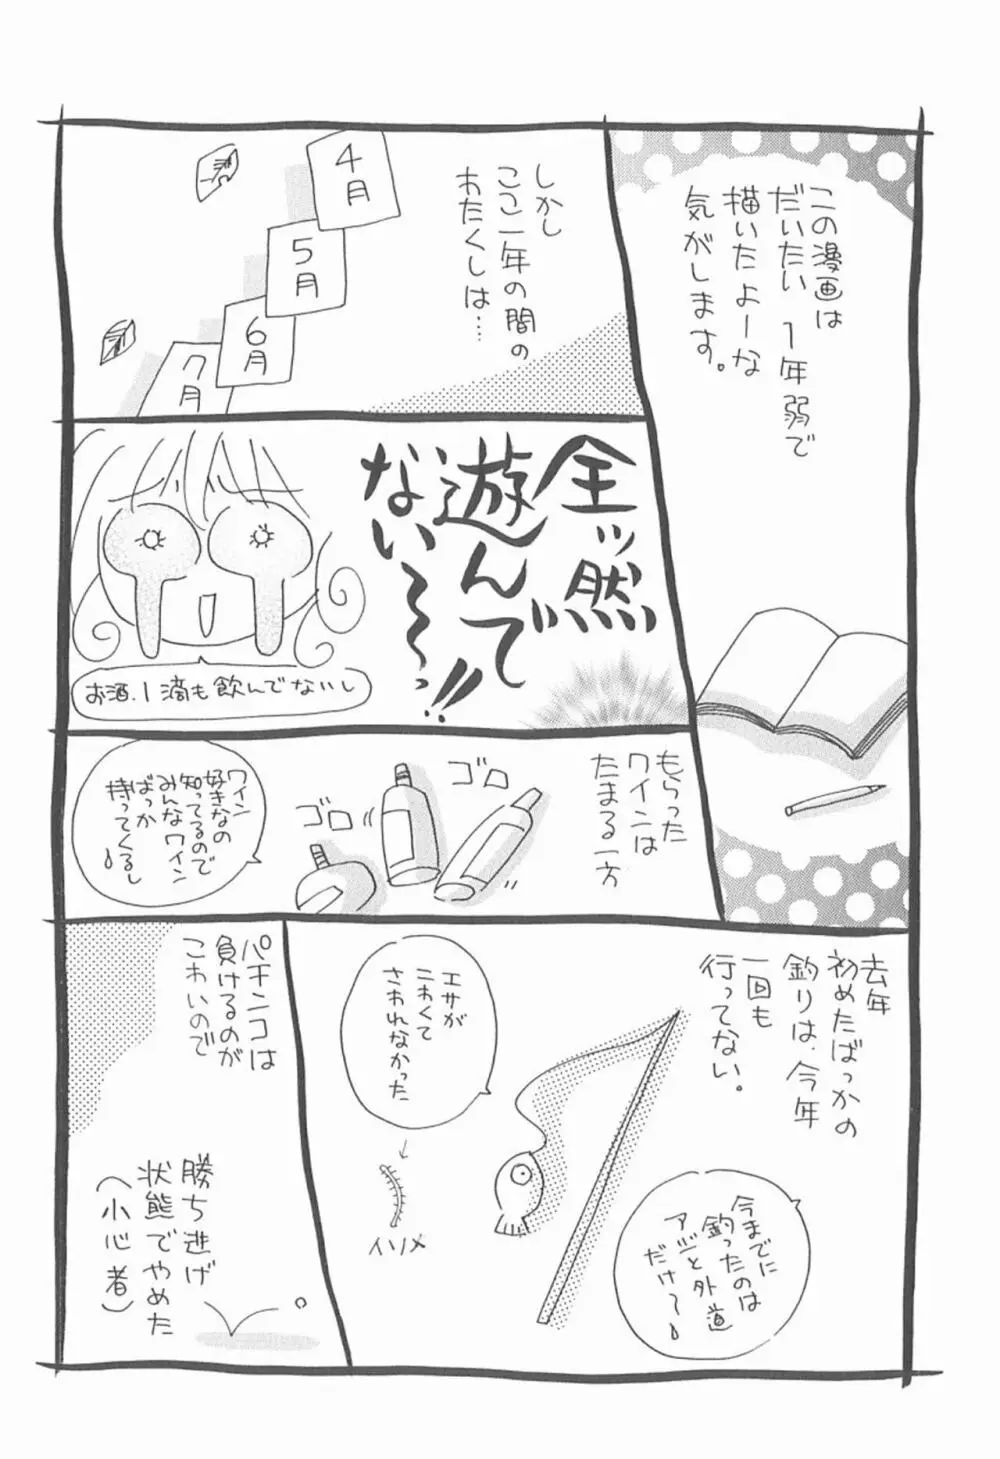 この漫画は
だいたい1年弱で
描いたよーな
気がします。
しかし
ここ一年の間の
わたくしは…
4月
5月
6月
7月
全ッ然
遊んで
ない〜〜っ!!
お酒、1滴も飲んでないし
もらった
ワインは
たまる一方
ゴロ
ゴロ
ワイン
好きなの
知ってるので
みんなワイン
ばっか
持ってくるし
去年
初めたばっかの
釣りは、今年
一回も
行ってない。
今までに
釣ったのは
アジと外道
だけ〜
エサが
こわくて
さわれなかった
イソメ
パチンコは
負けるのが
こわいので
勝ち逃げ
状態でやめた
(小心者)